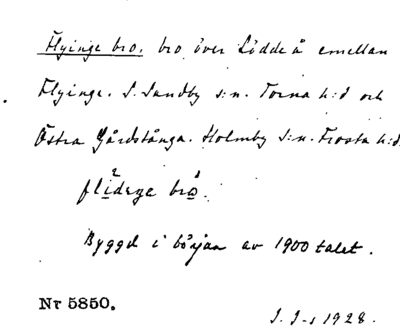 Flyinge bro. bro över Lödde å emellan
Flyinge. S. Sandby s:n. Torna h:d och
Östra Gårdstånga. Holmby s:n. Frosta h:d.
bro.
Byggd i början av 1900 talet.
Nr 5850.
J. J-s 1928.